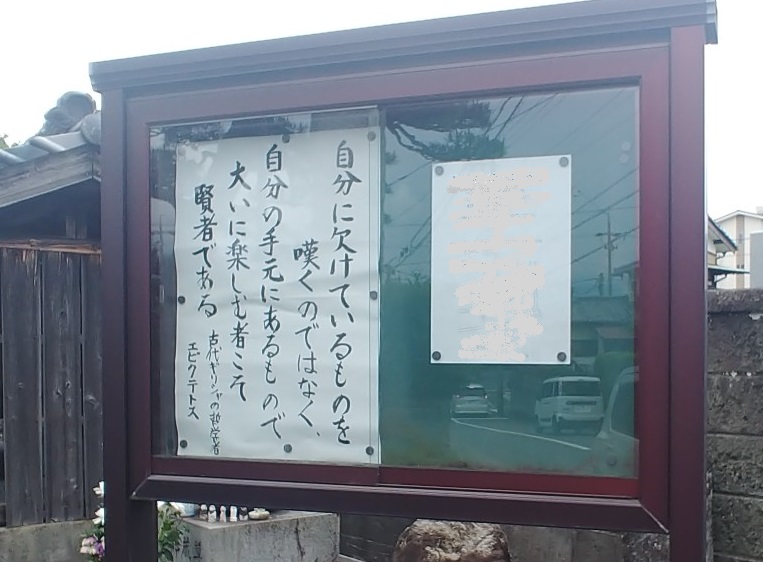 自分に欠けているものを
嘆くのではなく、
自分の手元にあるもので
大いに楽しむ者こそ
賢者である
古代ギリシャの哲学者
エピクテトス